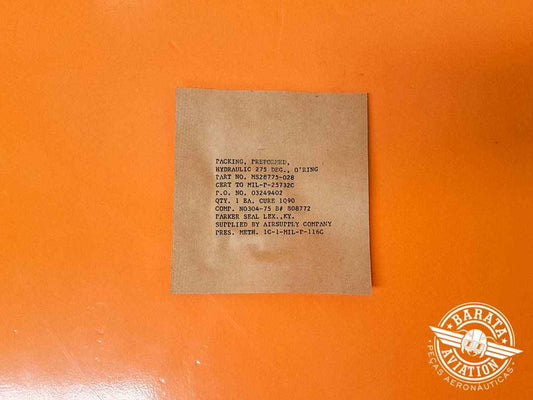 PACKING, PREFORMED,
HYDRAULIC 275 DEG., O'RING
PART NO. MS28775-028
CERT TO MIL-P-25732C
P.O. NO. 03249402
QTY. 1 EA. CURE 1Q90
COMP. N0304-75 B# 808772
PARKER SEAL LEX.,KY.
SUPPLIED BY AIRSUPPLY COMPANY
PRES. METH. 1C-1-MIL-P-116G
BARATA
AVIATION
PEÇAS AERONÁUTICAS